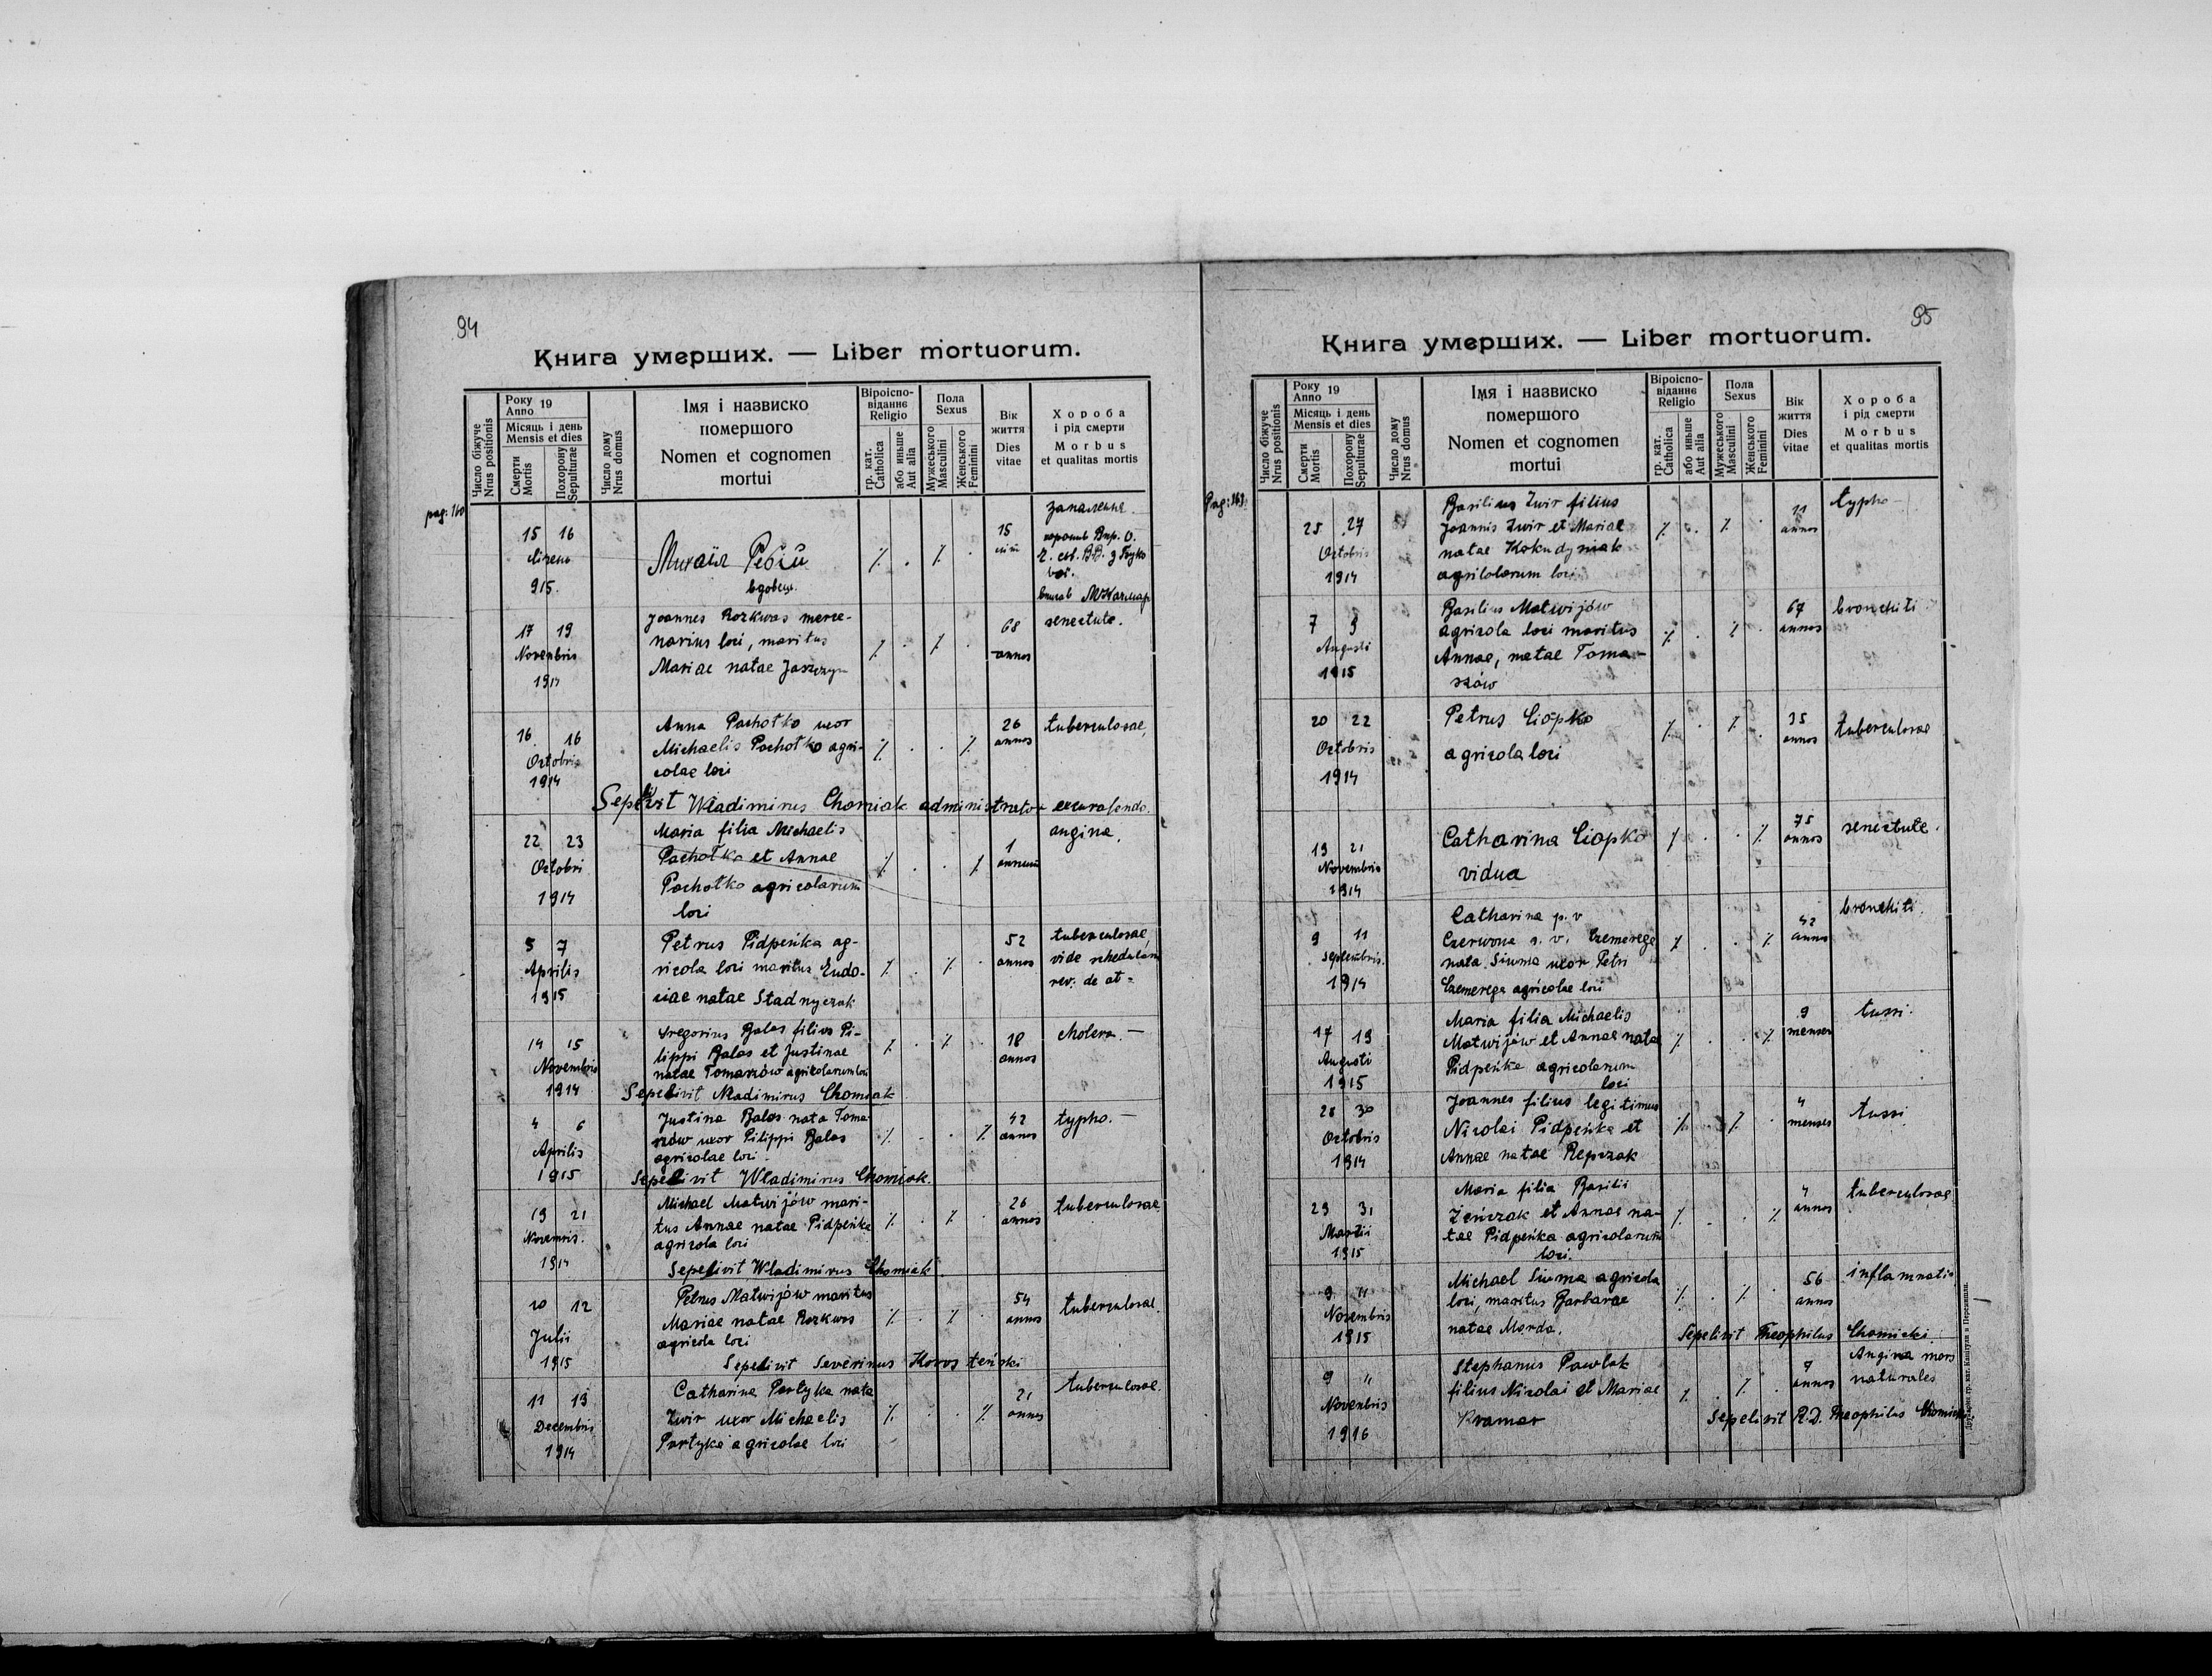 94
Книга умерших. — Liber mortuorum.
Число біжуче
Nrus positionis
Року
Anno 19
Місяць і день
Mensis et dies
Смерти
Mortis
Похорону
Sepulturae
Число дому
Nrus domus
Імя і назвиско
помершого
Nomen et cognomen
mortui
Віроіспо-
віданнє
Religio
гр. кат.
Catholica
або иньше
Aut alia
Пола
Sexus
Мужеського
Masculini
Женського
Feminini
Вік
життя
Dies
vitae
Хороба
і рід смерти
Morbus
et qualitas mortis
pag: 160
15 16
915.
Михаіл
вдовець
15
запалення
Joannes Rozkwas merce-
narius loci, maritus
Mariae natae
17 19
Novembris
1914
68
annos
senectute.
Anna Pachołko uxor
Michaelis Pachołko agri-
colae loci
16 16
Octobris
1914
26
annos
tuberculosae
Sepelivit Wladimirus Chomiak administrator excurrendo.
Maria filia Michaelis
Pachołko et Annae
Pachołko agricolarum
loci
22 23
Octobri
1914
1
annum
angina
Petrus Pidpeńka ag-
ricola loci maritus Eudo-
ciae natae Stadnyczuk
5 7
Aprilis
1915
52
annos
tuberculosae,
vide schedulam
rev: de at-
Gregorius Balas filius Pi-
lippi Balas et Justinae
natae Tomaszów agricolarum loci
14 15
Novembris
1914
18
annos
cholera. —
Sepelivit Wladimirus Chomiak
Justina Balas nata Toma
szów uxor Pilippi Balas
agricolae loci.
4 6
Aprilis
1915
42
annos
typho. —
Sepelivit Wladimirus Chomiak.
Michael Matwijów mari-
tus Annae natae Pidpeńka
agricola loci
19 21
1914
26
annos
tuberculosae
Sepelivit Wladimirus Chomiak
Petrus Matwijów maritus
Mariae natae Rozkwas
agricola loci
10 12
Julii
1915
54
annos
tuberculosae.
Sepelivit Severinus
Catharina Partyka nata
Zwir uxor Michaelis
Partyka agricolae loci
11 13
Decembris
1914
21
annos
tuberculosae.
95
Книга умерших. — Liber mortuorum.
Число біжуче
Nrus positionis
Року
Anno 19
Місяць і день
Mensis et dies
Смерти
Mortis
Похорону
Sepulturae
Число дому
Nrus domus
Імя і назвиско
помершого
Nomen et cognomen
mortui
Віроіспо-
віданнє
Religio
гр. кат.
Catholica
або иньше
Aut alia
Пола
Sexus
Мужеського
Masculini
Женського
Feminini
Вік
життя
Dies
vitae
Хороба
і рід смерти
Morbus
et qualitas mortis
Basilius Zwir filius
Joannis Zwir et Mariae
natae Kokudyniak
agricolarum loci
25 27
Octobris
1914
11
annos
typho —
Basilius Matwijów
agricola loci maritus
Annae, natae Toma-
szów
7 9
Augusti
1915
67
annos
bronchiti
Petrus Ciopko
agricola loci
20 22
Octobris
1914
35
annos
tuberculosae
Catharina Ciopko
vidua
19 21
Novembris
1914
75
annos
senectute.
Catharina p. v
Czerwona s. v. Czemerega
nata Siuma uxor Petri
Czemerega agricolae loci
9 11
Septembris.
1914
42
annos
bronchiti.
Maria filia Michaelis
Matwijów et Annae natae
Pidpeńka agricolarum
loci
17 19
Augusti
1915
9
menses
tussi.
Joannes filius legitimus
Nicolai Pidpeńka et
Annae natae Repczak
28 30
Octobris
1914
4
menses
tussi
Maria filia Basilii
Zeńczak et Annae na-
tae Pidpeńka agricolarum
loci.
29 31
Martii
1915
4
annos
tuberculosae
Michael Siuma agricola
loci, maritus Barbarae
natae Marda.
9 11
Novembris
1915
56
annos
Sepelivit Theophilus Chomicki.
Stephanus Pawlak
filius Nicolai et Mariae
Kramar
9 11
Novembris
1916
7
annos
Angina mors
naturales
Sepelivit R.D. Theophilus